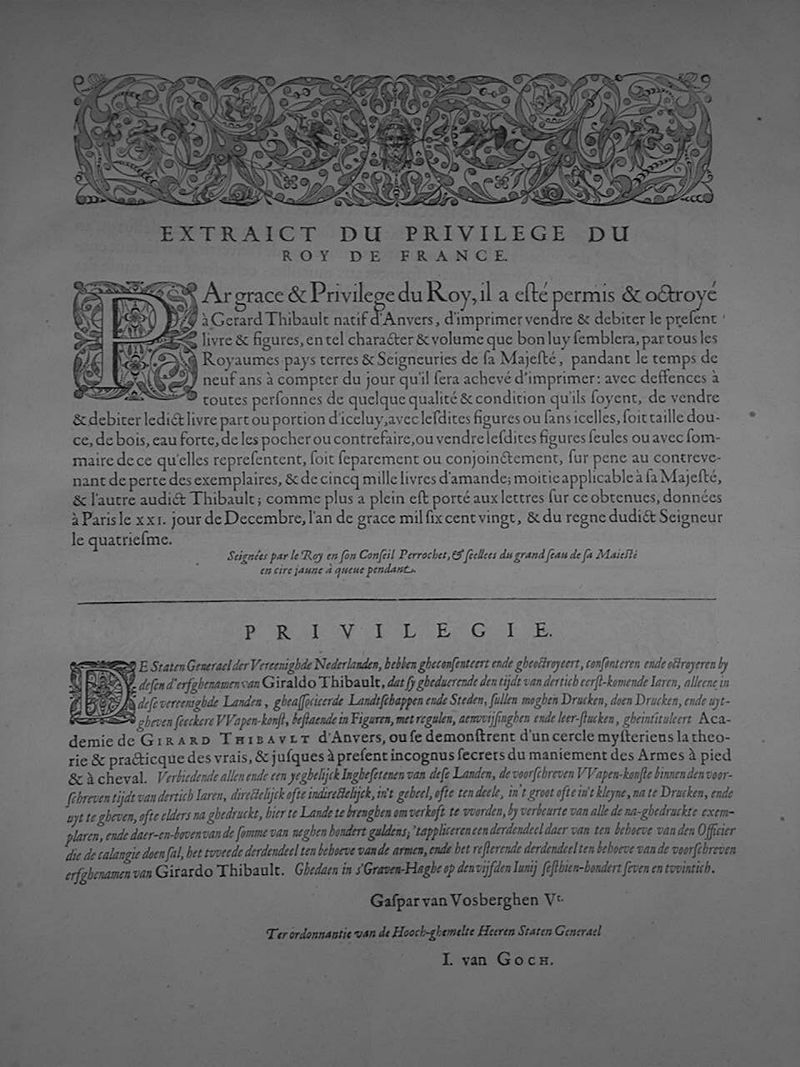 EXTRAICT DU PRIVILEGE DU
ROY DE FRANCE.
PAr grace & Privilege du Roy, il a eſté permis & octroyé
à Gerard Thibault natif d'Anvers, d'imprimer vendre & debiter le preſent
livre & figures, en tel character & volume que bon luy ſemblera, par tous les
Royaumes pays terres & Seigneuries de ſa Majeſté, pandant le temps de
neuf ans à compter du jour qu'il ſera achevé d'imprimer: avec deffences à
toutes perſonnes de quelque qualité & condition qu'ils ſoyent, de vendre
& debiter ledict livre part ou portion d'iceluy, avec leſdites figures ou ſans icelles, ſoit taille dou-
ce, de bois, eau forte, de les pocher ou contrefaire, ou vendre leſdites figures ſeules ou avec ſom-
maire de ce qu'elles repreſentent, ſoit ſeparement ou conjoinctement, ſur pene au contreve-
nant de perte des exemplaires, & de cincq mille livres d'amande; moitie applicable à ſa Majeſté,
& l'autre audict Thibault; comme plus a plein eſt porté aux lettres ſur ce obtenues, données
à Paris le XXI. jour de Decembre, l'an de grace mil ſix cent vingt, & du regne dudict Seigneur
le quatrieſme.
Seignées par le Roy en ſon Conſeil Perrochet, & ſeellees du grand ſeau de ſa Maieſté
en cire jaune à queue pendante.
PRIVILEGIE.
DE Staten Generael der Vereenighde Nederlanden, hebben gheconſenteert ende gheoctroyeert, conſenteren ende octroyeren by
deſen d'erfghenamen van Giraldo Thibault, dat ſy gheduerende den tijdt van dertich eerſt-komende Iaren, alleene in
deſe vereenighde Landen, gheaſſocieerde Landtſchappen ende Steden, ſullen moghen Drucken, doen Drucken, ende uyt-
gheven ſeeckere VVapen-konſt, beſtaende in Figuren, met regulen, aenwijſinghen ende leer-ſtucken, gheintituleert Aca-
demie de GIRARD THIBAVLT d'Anvers, ou ſe demonſtrent d'un cercle myſteriens la theo-
rie & practicque des vrais, & juſques à preſent incognus ſecrets du maniement des Armes à pied
& à cheval. Verbiedende allen ende een yeghelijck Ingheſetenen van deſe Landen, de voorſchreven VVapen-konſte binnen den voor-
ſchreven tijdt van dertich Iaren, directelijck ofte indirectelijck, in't geheel, ofte ten deele, in't groot ofte in't kleyne, na te Drucken, ende
uyt te gheven, ofte elders na ghedruckt, hier te Lande te brenghen om verkoft te vvorden, by verbeurte van alle de na-ghedruckte exem-
plaren, ende daer-en-boven van de ſomme van neghen hondert guldens, 'tappliceren een derdendeel daer van ten behoeve van den Officier
die de calangie doen ſal, het tvveede derdendeel ten behoeve van de armen, ende het reſterende derdendeel ten behoeve van de voorſchreven
erfghenamen van Girardo Thibault. Ghedaen in s'Graven-Haghe op den vijfden Iunij ſeſthien-hondert ſeven en tvvintich.
Gaſpar van Vosberghen Vt.
Ter ordonnantie van de Hooch-ghemelte Heeren Staten Generael
I. van GOCH.